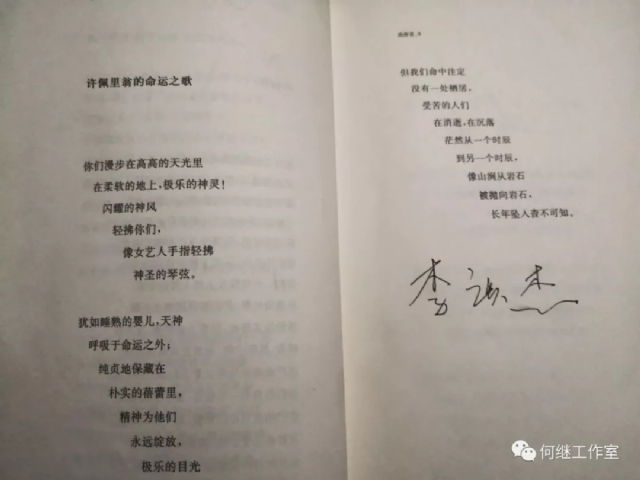 许佩里翁的命运之歌
你们漫步在高高的天光里
在柔软的地上,极乐的神灵!
闪耀的神风
轻拂你们,
像女艺人手指轻拂
神圣的琴弦。
犹如睡熟的婴儿,天神
呼吸于命运之外;
纯贞地保藏在
朴实的蓓蕾里,
精神为他们
永远绽放,
极乐的目光
但我们命中注定
没有一处栖居,
受苦的人们
在消逝,在沉落
茫然从一个时辰
到另一个时辰,
像山涧从岩石
被抛向岩石,
长年坠入杳不可知。
何继工作室